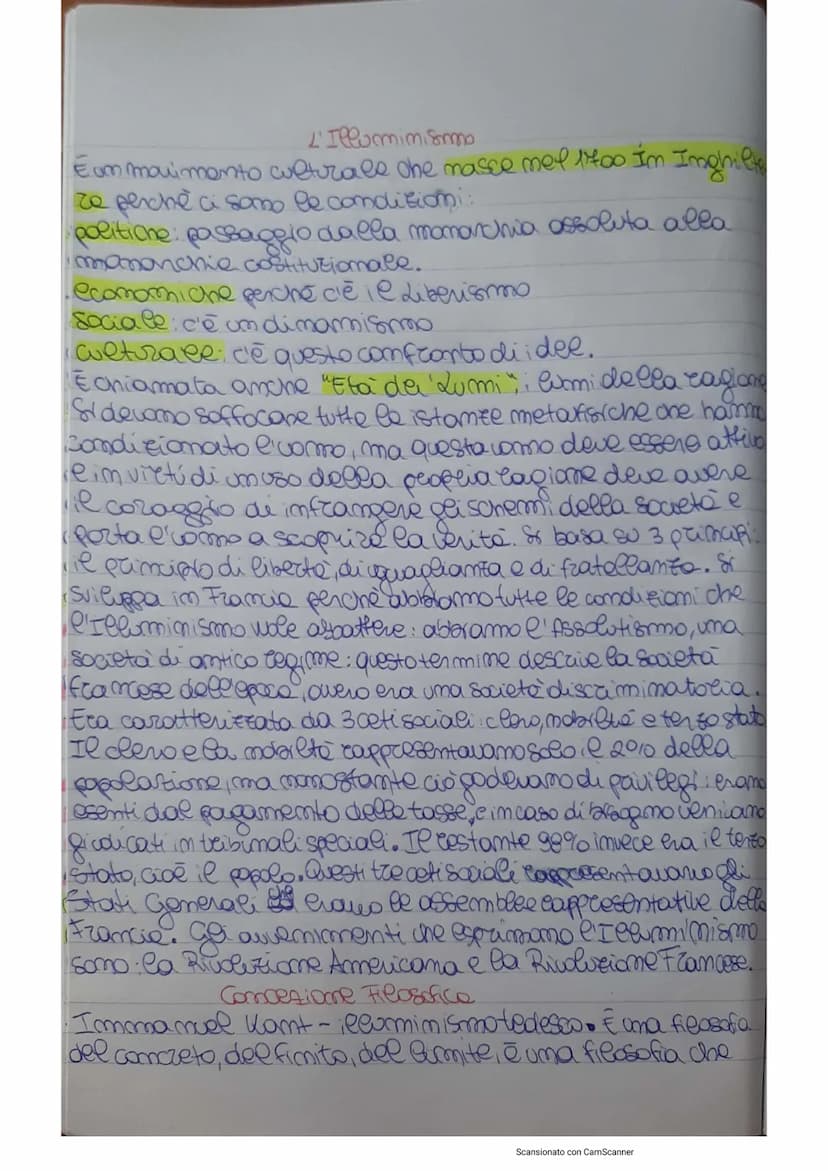 L'Illuminismo
È un movimento culturale che nasce nel 1700 in Inghilter
ra perché ci sono le condizioni:
politiche: passaggio dalla monarchia assoluta alla
monarchia costituzionale.
economiche perché c'è il Liberismo
sociale: c'è un dinamismo
culturale: c'è questo confronto di idee.
È chiamata anche "Età dei Lumi", lumi della ragione
Si devono soffocare tutte le istanze metafisiche che hanno
condizionato l'uomo, ma questo uomo deve essere attivo
e in virtú di un uso della propria ragione deve avere
il coraggio di infrangere gli schemi della società e
porta l'uomo a scoprire la verità. Si basa su 3 principi:
il principio di libertà, di uguaglianza e di fratellanza. Si
sviluppa in Francia perché abbiamo tutte le condizioni che
l'Illuminismo vuole abbattere: abbiamo l'Assolutismo, una
società di antico regime: questo termine descrive la società
francese dell'epoca, ovvero era una società discriminatoria.
Era caratterizzata da 3 ceti sociali: clero, nobiltà e terzo stato
Il clero e la nobiltà rappresentavano solo il 2% della
popolazione, ma nonostante ciò godevano di privilegi: erano
esenti dal pagamento delle tasse, e in caso di bisogno venivano
giudicati in tribunali speciali. Il restante 98% invece era il terzo
stato, cioè il popolo. Questi tre ceti sociali rappresentavano gli
Stati Generali erano le assemblee rappresentative della
Francia. Gli avvenimenti che esprimono l'Illuminismo
sono: la Rivoluzione Americana e la Rivoluzione Francese.
Concezione Filosofica
Immanuel Kant - illuminismo tedesco. È una filosofia
del concreto, del finito, del limite, è una filosofia che
Scansionato con CamScanner